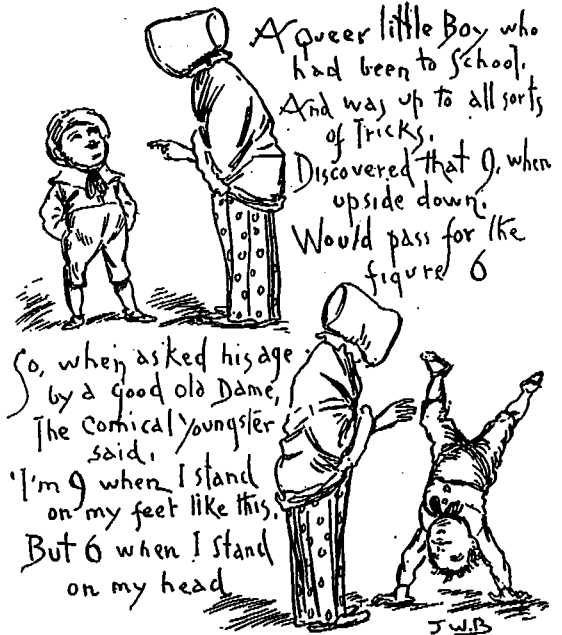 A queer little Boy who
had been to School,
And was up to all sorts
of Tricks,
Discovered that 9, when
upside down,
Would pass for the
figure 6
So, when asked his age
by a good old Dame,
The Comical Youngster
said,
'I'm 9 when I stand
on my feet like this,
But 6 when I stand
on my head
J.W.B